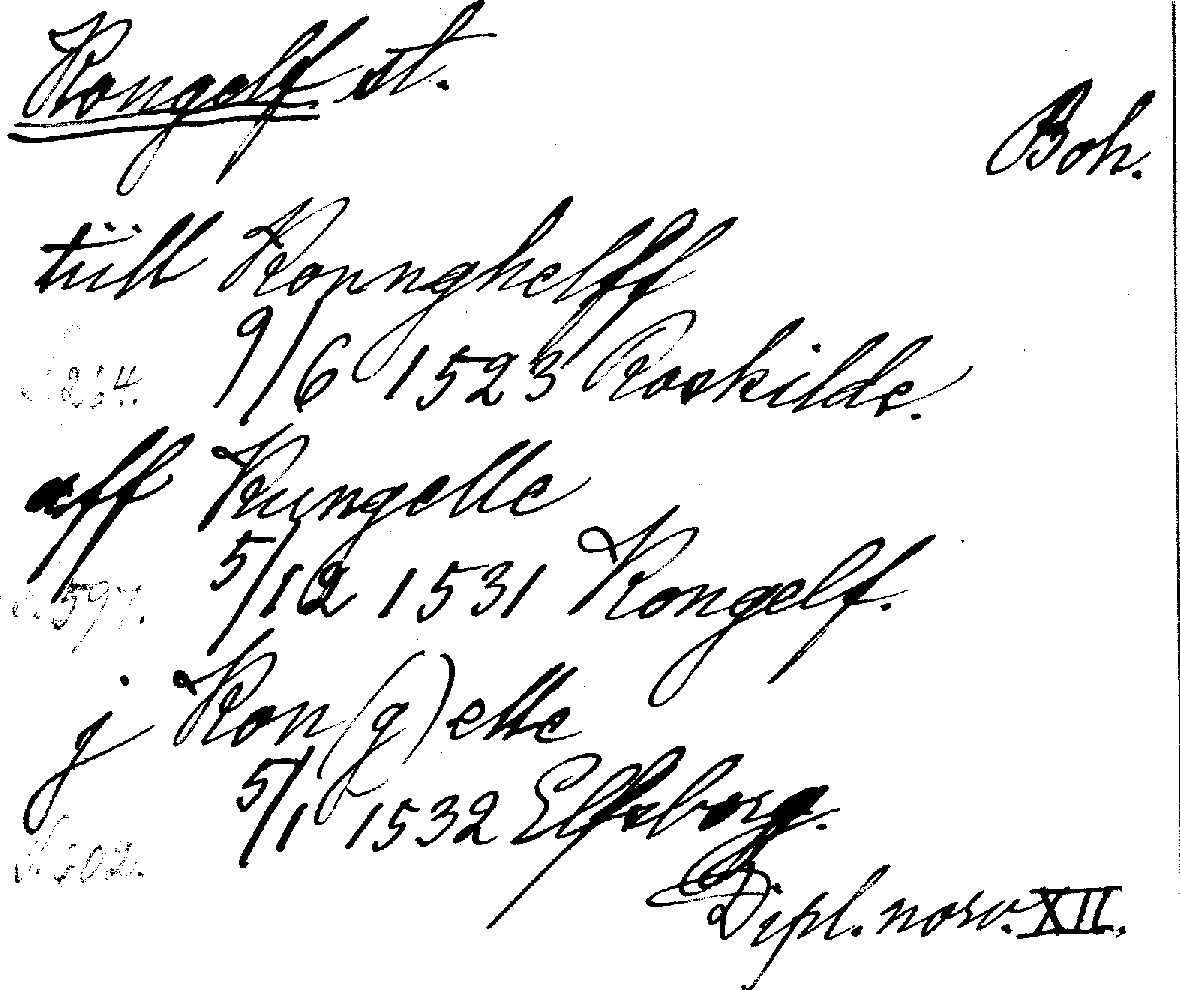 Kongelf. st.
Boh.
tiill Konnghelff
S. 264. 9/6 1523 Roskilde.
aff Kungelle
S. 597. 5/12 1531 Kongelf.
j Kon(g)elle
S. 602. 5/1 1532 Elfsborg.
Dipl. norv. XII.